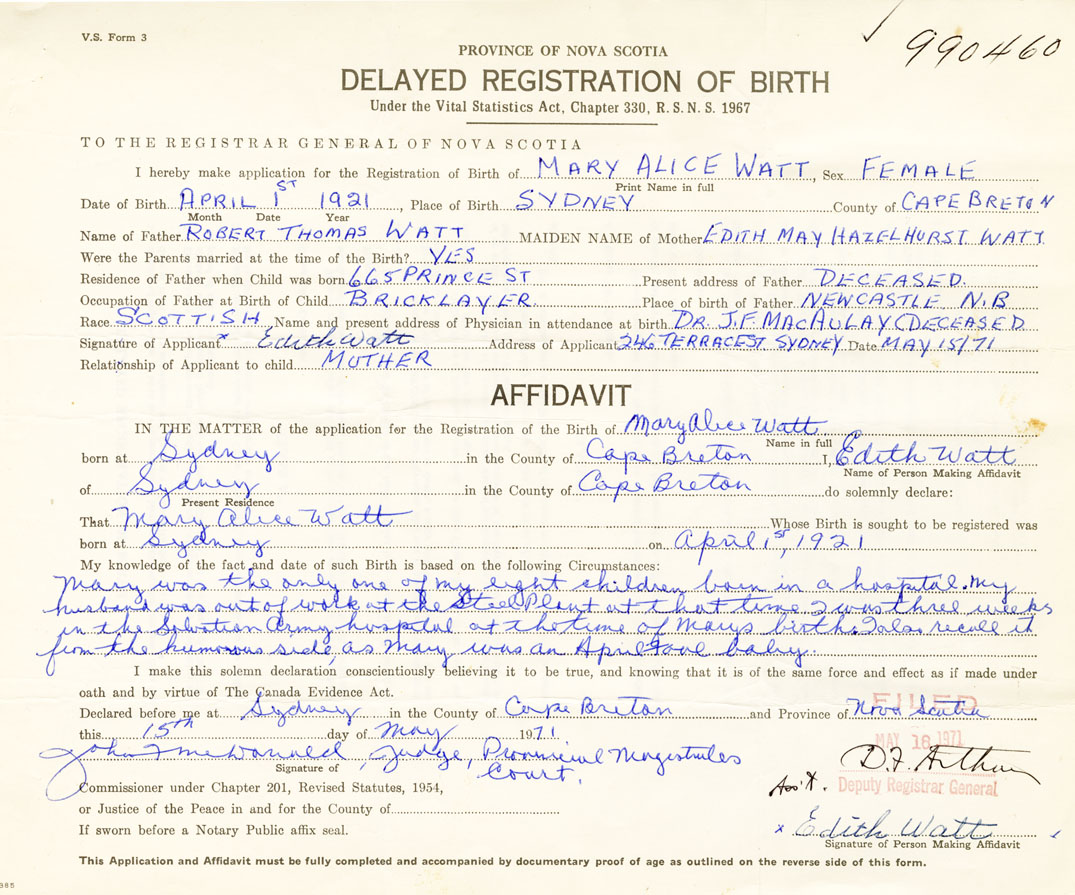 V.S. Form 3
990460
PROVINCE OF NOVA SCOTIA
DELAYED REGISTRATION OF BIRTH
Under the Vital Statistics Act, Chapter 330, R.S.N.S. 1967
TO THE REGISTRAR GENERAL OF NOVA SCOTIA
I hereby make application for the Registration of Birth of MARY ALICE WATT, Sex FEMALE
Print Name in full
Date of Birth APRIL 1ST 1921, Place of Birth SYDNEY County of CAPE BRETON
Month Date Year
Name of Father ROBERT THOMAS WATT MAIDEN NAME of Mother EDITH MAY HAZELHURST WATT
Were the Parents married at the time of the Birth? YES
Residence of Father when Child was born 665 PRINCE ST Present address of Father DECEASED
Occupation of Father at Birth of Child BRICKLAYER Place of birth of Father NEWCASTLE N.B
Race SCOTTISH Name and present address of Physician in attendance at birth DR. J.F. MACAULAY (DECEASED
Signature of Applicant x Edith Watt Address of Applicant 246 TERRACE ST SYDNEY Date MAY 15/71
Relationship of Applicant to child MOTHER
AFFIDAVIT
IN THE MATTER of the application for the Registration of the Birth of Mary Alice Watt
Name in full
born at Sydney in the County of Cape Breton I, Edith Watt
Name of Person Making Affidavit
of Sydney in the County of Cape Breton do solemnly declare:
Present Residence
That Mary Alice Watt Whose Birth is sought to be registered was
born at Sydney on April 1st, 1921
My knowledge of the fact and date of such Birth is based on the following Circumstances:
Mary was the only one of my eight children born in a hospital. My
husband was out of work at the Steel Plant at that time I was three weeks
in the Salvation Army hospital at the time of Marys birth. I also recall it
from the humorous side, as Mary was an April fool baby.
I make this solemn declaration conscientiously believing it to be true, and knowing that it is of the same force and effect as if made under
oath and by virtue of The Canada Evidence Act.
Declared before me at Sydney in the County of Cape Breton and Province of Nova Scotia
FILED
this 15th day of May 1971
MAY 16 1971
John F McDonald, Judge, Provincial Magistrates
Court.
Signature of
D.F. Arthur
Ass't. Deputy Registrar General
Commissioner under Chapter 201, Revised Statutes, 1954,
or Justice of the Peace in and for the County of
x Edith Watt
If sworn before a Notary Public affix seal.
Signature of Person Making Affidavit
This Application and Affidavit must be fully completed and accompanied by documentary proof of age as outlined on the reverse side of this form.
385